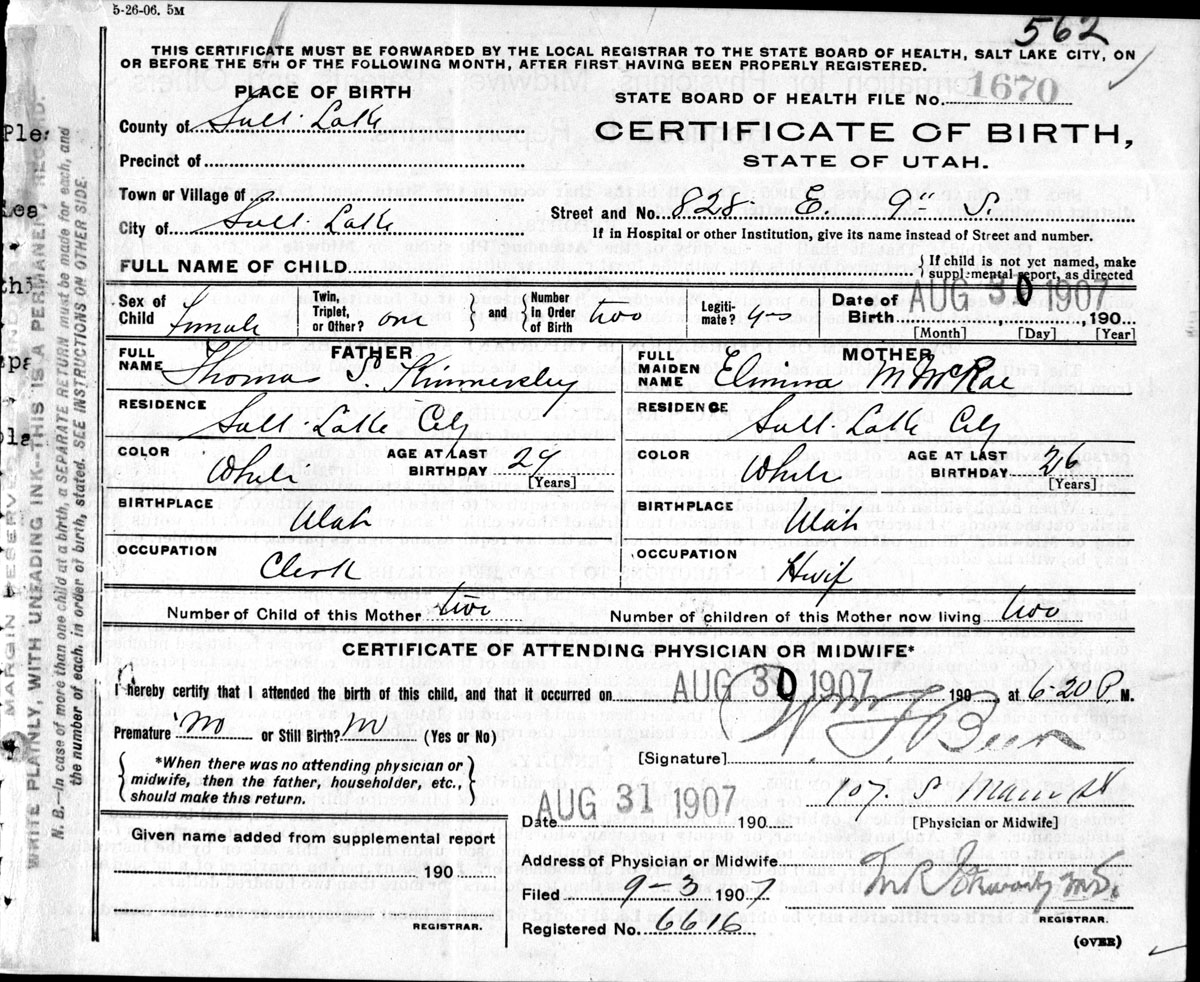 5-26-06. 5M
562
THIS CERTIFICATE MUST BE FORWARDED BY THE LOCAL REGISTRAR TO THE STATE BOARD OF HEALTH, SALT LAKE CITY, ON
OR BEFORE THE 5TH OF THE FOLLOWING MONTH, AFTER FIRST HAVING BEEN PROPERLY REGISTERED.
PLACE OF BIRTH
STATE BOARD OF HEALTH FILE No. 1670
County of Salt Lake
CERTIFICATE OF BIRTH,
Precinct of
STATE OF UTAH.
Town or Village of
Street and No. 828 E. 9" S.
City of Salt Lake
If in Hospital or other Institution, give its name instead of Street and number.
FULL NAME OF CHILD
{If child is not yet named, make
supplemental report, as directed
Sex of Child Female
Twin, Triplet, or Other? one
and
Number in Order of Birth two
Legiti-mate? yes
Date of Birth AUG 30 1907, 190
[Month] [Day] [Year]
FATHER
FULL NAME Thomas P. Kinnersley
MOTHER
FULL MAIDEN NAME Elmina M McRae
RESIDENCE Salt Lake City
RESIDENCE Salt Lake City
COLOR White
AGE AT LAST BIRTHDAY 29 [Years]
COLOR White
AGE AT LAST BIRTHDAY 26 [Years]
BIRTHPLACE Utah
BIRTHPLACE Utah
OCCUPATION Clerk
OCCUPATION Hwif
Number of Child of this Mother two
Number of children of this Mother now living two
CERTIFICATE OF ATTENDING PHYSICIAN OR MIDWIFE*
I hereby certify that I attended the birth of this child, and that it occurred on AUG 30 1907 190 at 6-20 P M.
Premature no or Still Birth? no (Yes or No)
[Signature]
*When there was no attending physician or
midwife, then the father, householder, etc.,
should make this return.
107. S Main St
[Physician or Midwife]
Date AUG 31 1907 190
Given name added from supplemental report
190
REGISTRAR.
Address of Physician or Midwife
Filed 9-3 1907
Registered No. 6616
REGISTRAR.
(OVER)
MARGIN RESERVED
WRITE PLAINLY, WITH UNFADING INK--THIS IS A PERMANENT RECORD.
N. B.--In case of more than one child at a birth, a SEPARATE RETURN must be made for each, and
the number of each, in order of birth, stated. SEE INSTRUCTIONS ON OTHER SIDE.